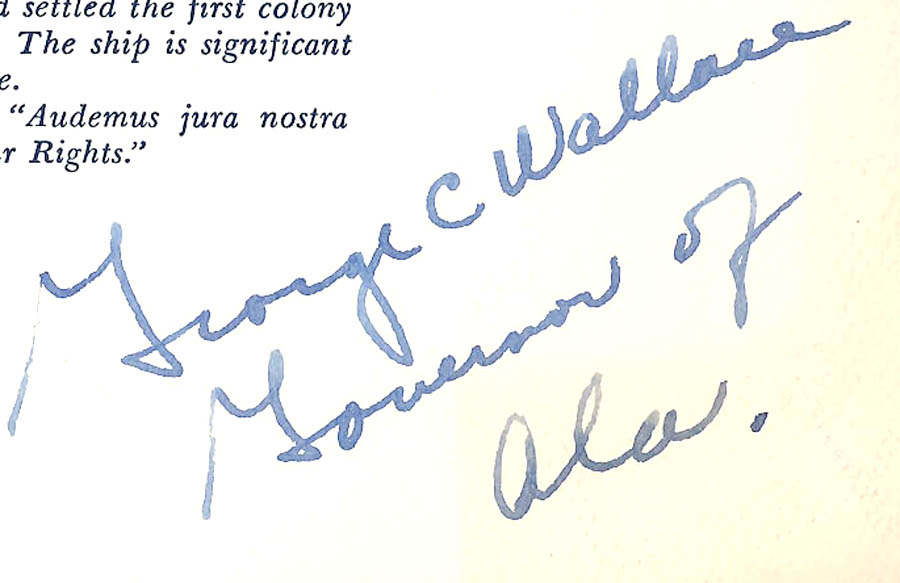 settled the first colony
The ship is significant
e.
"Audemus jura nostra
r Rights."
George C Wallace
Governor of
Ala.